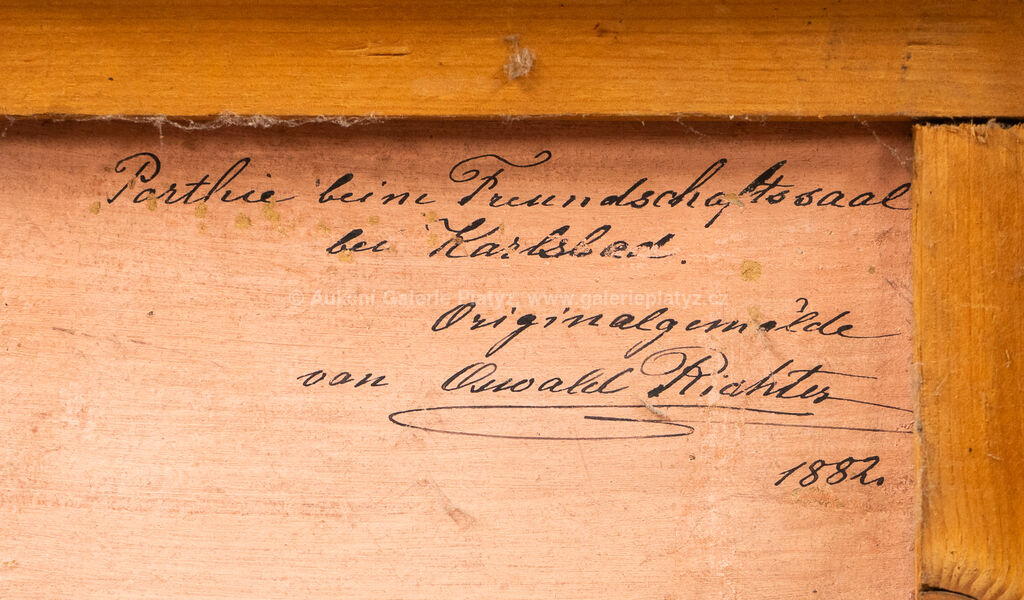 Parthie beim Freundschaftssaal
bei Karlsbad.
© Aukční Galerie Platýz, www.galerieplatyz.cz
Originalgemälde
von Oswald Richter
1882.